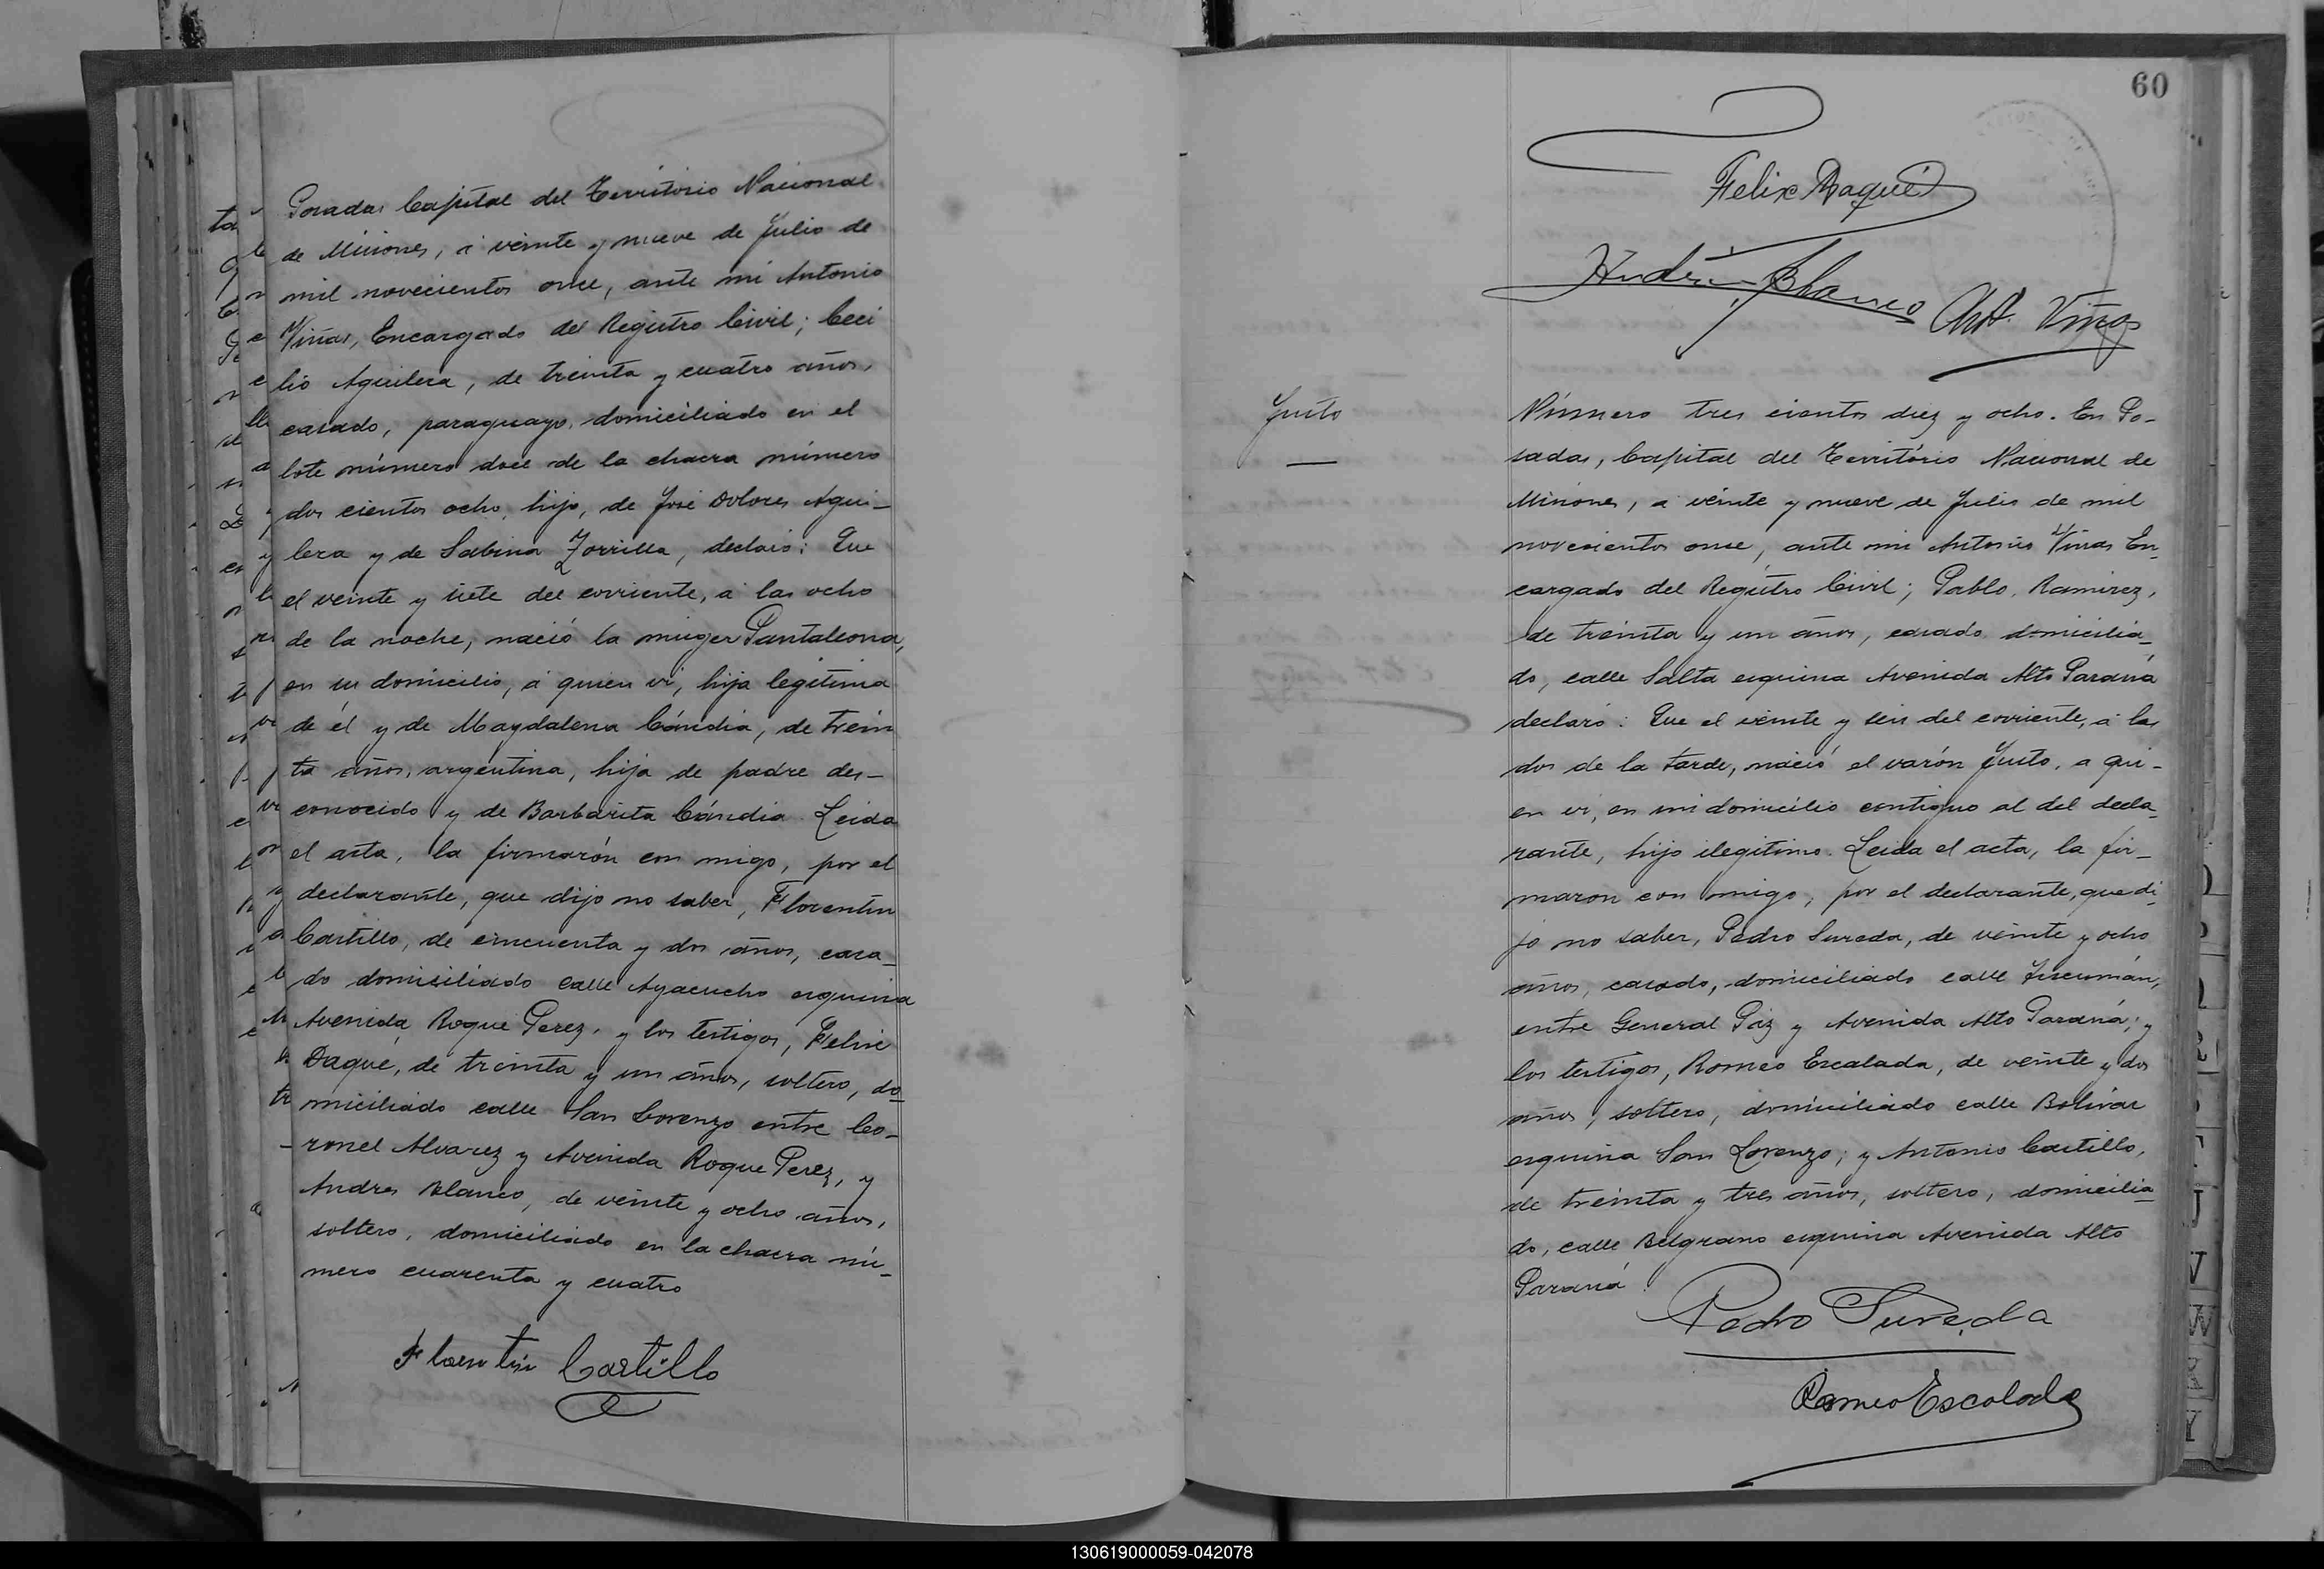 Posadas Capital del Territorio Nacional
de Misiones, á veinte y nueve de Julio de
mil novecientos once, ante mi Antonio
Viñas, Encargado del Registro Civil; Ceci
lio Aguilera, de treinta y cuatro años,
casado, paraguayo, domiciliado en el
lote número doce de la chacra número
dos cientos ocho, hijo, de José Dolores Agui-
lera y de Sabina Zorrilla, declaró: Que
el veinte y siete del corriente, á las ocho
de la noche, nació la muger Pantaleona,
en su domicilio, á quien vi, hija legítima
de él y de Magdalena Cándia, de trein
ta años, argentina, hija de padre des-
conocido y de Barbarita Cándia. Leida
el acta, la firmarón con migo, por el
declarante, que dijo no saber, Florentin
Castillo, de cincuenta y dos años, casa-
do domiciliado calle Ayacucho esquina
Avenida Roque Perez, y los testigos, Felix
Daqué, de treinta y un años, soltero, do-
miciliado calle San Lorenzo entre Co-
ronel Alvarez y Avenida Roque Perez, y
Andres Blanco, de veinte y ocho años,
soltero, domiciliado en la chacra nú-
mero cuarenta y cuatro
Florentin Castillo
60
Felix Daqué
Andrés Blanco
Ant. Viñas
Justo
Número tres cientos diez y ocho. En Po-
sadas, Capital del Territorio Nacional de
Misiones, á veinte y nueve de Julio de mil
novecientos once, ante mi Antonio Viñas En-
cargado del Registro Civil; Pablo Ramirez,
de treinta y un años, casado domicilia-
do, calle Salta esquina Avenida Alto Paraná
declaró: Que el veinte y seis del corriente, á las
dos de la tarde, nació el varón Justo, a qui-
en vi, en mi domicilio contiguo al del decla-
rante, hijo ilegitimo. Leida el acta, la fir-
maron con migo, por el declarante, que di-
jo no saber, Pedro Sureda, de veinte y ocho
años, casado, domiciliado calle Tucumán,
entre General Paz y Avenida Alto Paraná; y
los testigos, Romeo Escalada, de veinte y dos
años, soltero, domiciliado calle Bolivar
esquina San Lorenzo; y Antonio Castillo,
de treinta y tres años, soltero, domicilia-
do, calle Belgrano esquina Avenida Alto
Paraná.
Pedro Sureda
Romeo Escalada
130619000059-042078